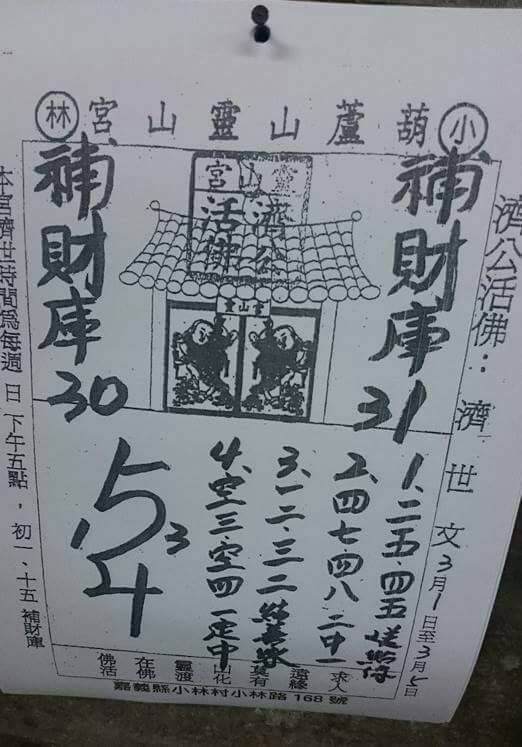 小葫蘆山靈山宮林
濟公活佛：濟世文3月1日至3月5日
補財庫31
靈山宮
濟公
活佛
靈山宮
補財庫30
1、二五、四五
2、四七、四八 二中一
3、一二、三二
4、空三、空四 一定中
1
5
3
4
本宮濟世時間為每週日下午五點，初一、十五補財庫
佛在靈山莫遠求
活佛渡化有緣人
嘉義縣小林村小林路168號